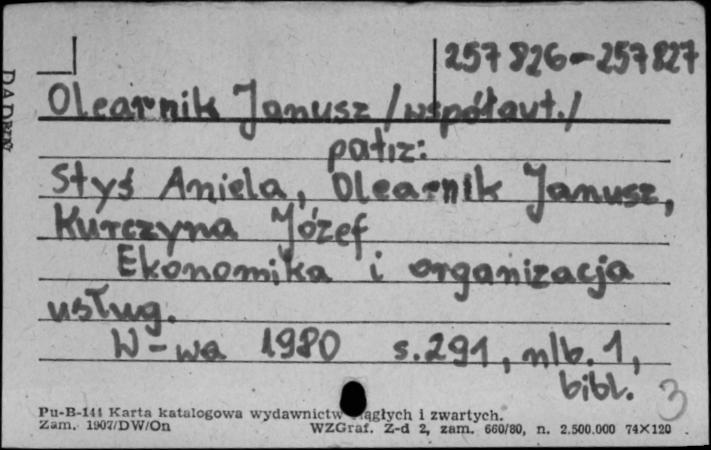 257 826-257 827
Olearnik Janusz /współaut./
patrz:
Styś Aniela, Olearnik Janusz,
Kurczyna Józef
Ekonomika i organizacja
usług.
W-wa 1980 s.291, nlb. 1,
bibl.
3
Pu-B-141 Karta katalogowa wydawnictw ciągłych i zwartych.
Zam. 1907/DW/On WZGraf. Z-d 2, zam. 660/80, n. 2.500.000 74X120